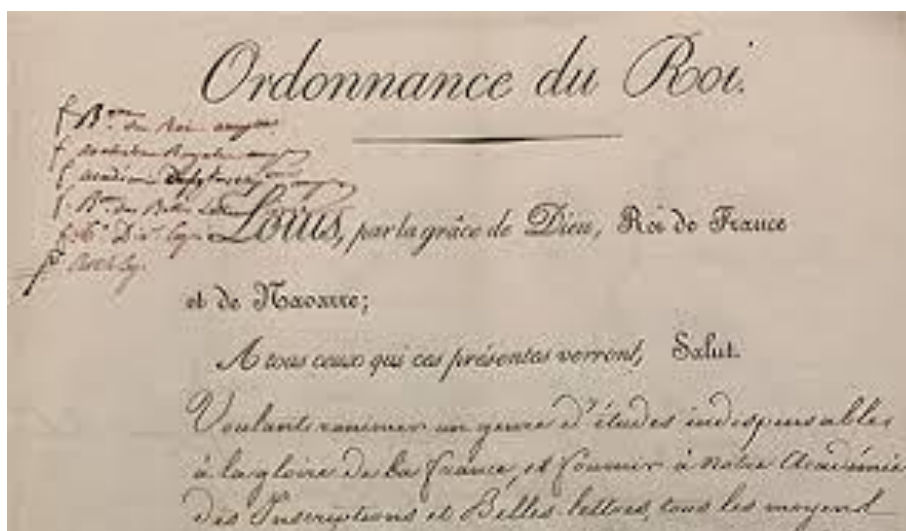 Ordonnance du Roi.
Bᵒⁿ du Roi
Royale
Académie
des Belles
Louis, par la grâce de Dieu, Roi de France
et de Navarre;
A tous ceux qui ces présentes verront, Salut.
Voulant ranimer un genre d'études indispensables
à la gloire de la France, et fournir à notre Académie
des Inscriptions et Belles lettres, tous les moyens